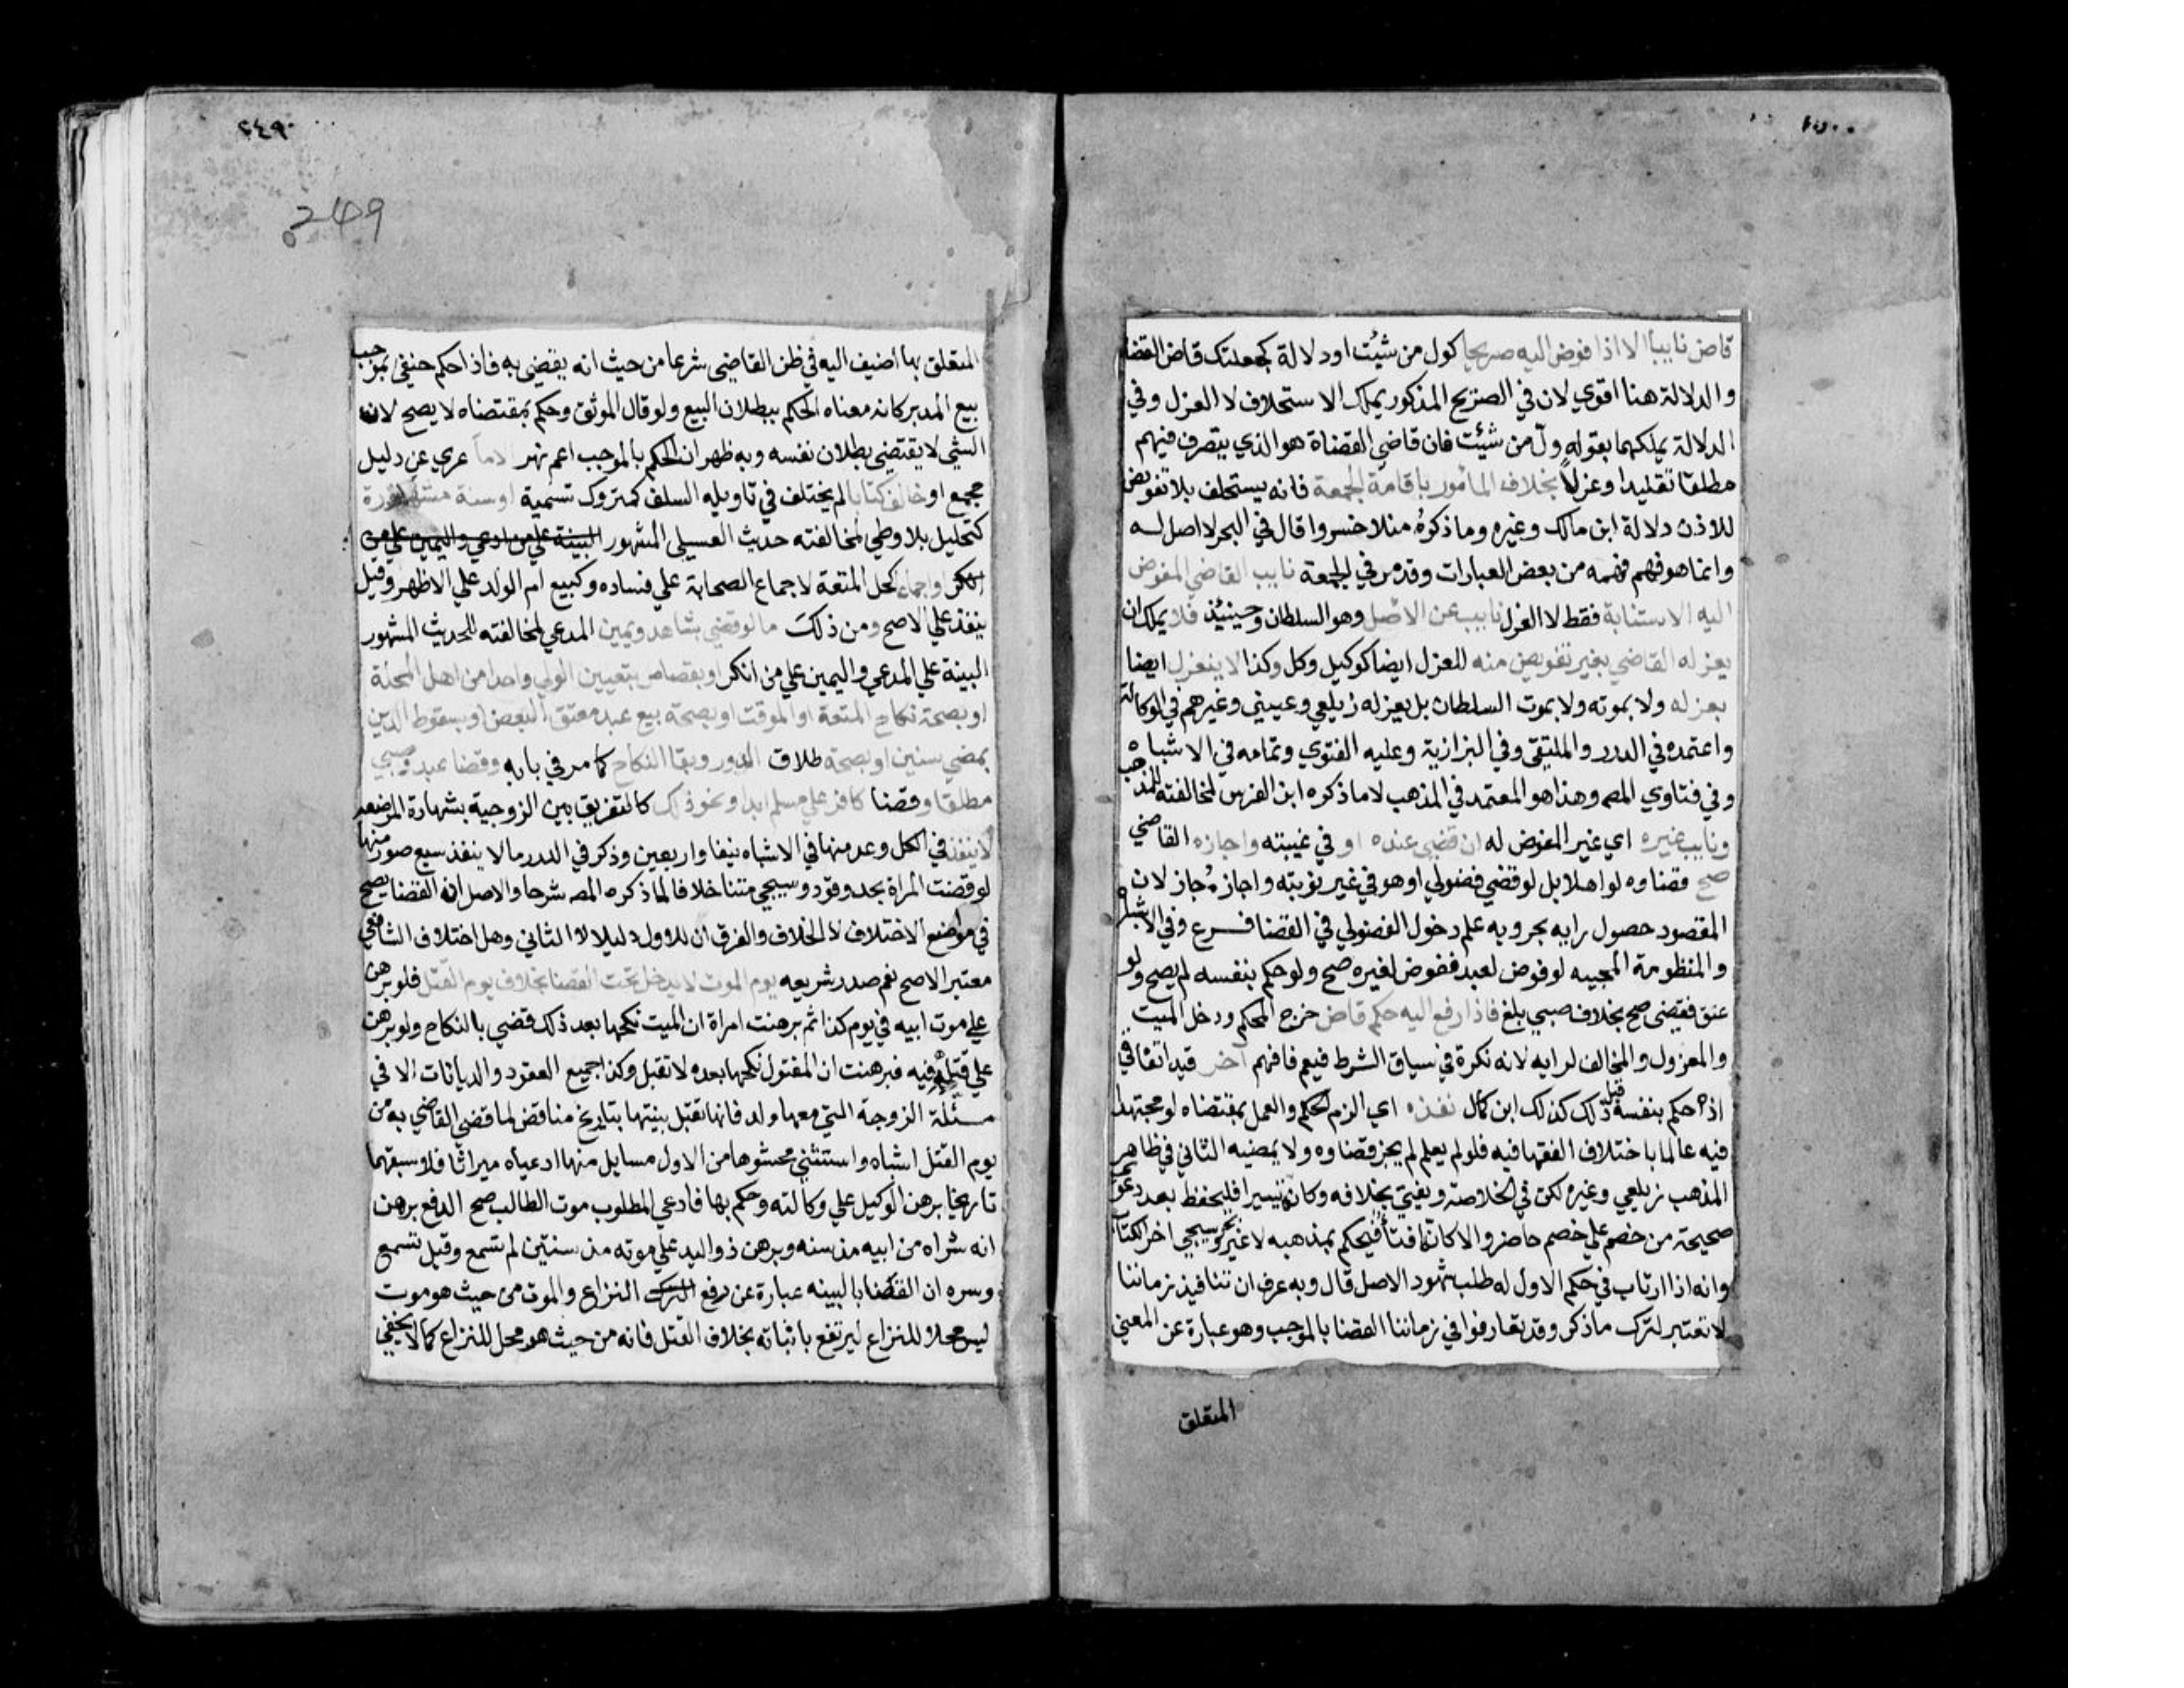 قاض نايبا الا اذا فوض اليه صريحا كول من شئت او دلالة كجعلتك قاض القضاة
والدلالة هنا اقوي لان في الصريح المذكور يملك الاستخلاف لا العزل وفي
الدلالة يملكهما بقوله ول من شئت فان قاضي القضاة هو الذي يتصرف فيهم
مطلقا تقليدا وعزلا بخلاف المامور باقامة الجمعة فانه يستخلف بلا تفويض
للاذن دلالة ابن مالك وغيره وما ذكره منلا خسروا قال في البحر لا اصل له
وانما هو فهم فهمه من بعض العبارات وقد مر في الجمعة نايب القاضي المفوض
اليه الاستنابة فقط لا العزل نايب عن الاصل وهو السلطان وحينئذ فلا يملك ان
يعزله القاضي بغير تفويض منه للعزل ايضا كوكيل وكل وكذا لا ينعزل ايضا
بعزله ولا بموته ولا بموت السلطان بل بعزله زيلعي وعيني وغيرهم في الوكالة
واعتمده في الدرر والملتقي وفي البزازية وعليه الفتوي وتمامه في الاشباه
وفي فتاوي المصـ وهذا هو المعتمد في المذهب لا ما ذكره ابن الغرس لمخالفته للمذهب
ونايب غيره اي غير المفوض له ان قضي عنده او في غيبته واجازه القاضي
صح قضاوه لو اهلا بل لو قضي فضولي او هو في غير نوبته واجازه جاز لان
المقصود حصول رايه بحر وبه علم دخول الفضولي في القضا فـرع وفي الاشباه
والمنظومة المحبيه لو فوض لعبد ففوض لغيره صح ولو حكم بنفسه لم يصح ولو
عتق فقضي صح بخلاف صبي بلغ فاذا رفع اليه حكم قاض خرج المحكم ودخل الميت
والمعزول والمخالف لرايه لانه نكرة في سياق الشرط فيعم فافهم آخر قيد اتفاقي
اذ حكم بنفسه قبل ذلك كذلك ابن كمال نفذه اي الزم الحكم والعمل بمقتضاه لو مجتهدا
فيه عالما باختلاف الفقها فيه فلو لم يعلم لم يجز قضاوه ولا يمضيه الثاني في ظاهر
المذهب زيلعي وغيره لكن في الخلاصة ويفتي بخلافه وكانه تيسيرا فليحفظ بعد دعوي
صحيحة من خصم علي خصم حاضر والا كان افتأ فيحكم بمذهبه لا غير بحر وسيجي اخر الكتاب
وانه اذا ارتاب في حكم الاول له طلب شهود الاصل قال وبه عرف ان تنافيذ زماننا
لا تعتبر لترك ما ذكر وقد تعارفوا في زماننا القضا بالموجب وهو عبارة عن المعني
المتعلق
٢٤٩
249
المتعلق بما اضيف اليه في ظن القاضي شرعا من حيث انه يقضي به فاذا حكم حنفي بموجب
بيع المدبر كانه معناه الحكم ببطلان البيع ولو قال الموثق وحكم بمقتضاه لا يصح لان
الشي لا يقتضي بطلان نفسه وبه ظهر ان الحكم بالموجب اعم نهر عري عن دليل
مجمع او خالف كتابا لم يختلف في تاويله السلف كمتروك تسمية او سنة مشهورة
كتحليل بلا وطي لمخالفته حديث العسيلي المشهور البينة علي من ادعي واليمين علي من
انكر او اجماعا كحل المتعة لاجماع الصحابة علي فساده وكبيع ام الولد علي الاظهر وقيل
ينفذ علي الاصح ومن ذلك ما لو قضي بشاهد ويمين المدعي لمخالفته للحديث المشهور
البينة علي المدعي واليمين علي من انكر او بقصاص بتعيين الولي واحدا من اهل المحلة
او بصحة نكاح المتعة او الموقت او بصحة بيع عبد معتق البعض او بسقوط الدين
بمضي سنين او بصحة طلاق الدور وبقا النكاح كما مر في بابه وقضا عبد وصبي
مطلقا وقضا كافر علي مسلم ابدا ونحو ذلك كالتفريق بين الزوجية بشهادة المرضعة
لا ينفذ في الكل وعد منها في الاشباه نيفا واربعين وذكر في الدرر ما لا ينفذ سبع صور منها
لو قضت المراة بحد وقود وسيجي متنا خلافا لما ذكره المصـ شرحا والاصل ان القضا يصح
في موضع الاختلاف لا الخلاف والفرق ان للاول دليلا لا الثاني وهل اختلاف الشافعي
معتبر الاصح نعم صدر شريعه يوم الموت لا يدخل تحت القضا بخلاف يوم القتل فلو برهن
علي موت ابيه في يوم كذا ثم برهنت امراة ان الميت نكحها بعد ذلك قضي بالنكاح ولو برهن
علي قتله فيه فبرهنت ان المقتول نكحها بعده لا تقبل وكذا جميع العقود والديانات الا في
مسئلة الزوجة التي معها ولد فانها تقبل بينتها بتاريخ مناقض لما قضي القاضي به من
يوم القتل اشباه واستثني محشوها من الاول مسايل منها ادعياه ميراثا فلاسبقهما
تاريخا برهن الوكيل علي وكالته وحكم بها فادعي المطلوب موت الطالب صح الدفع برهن
انه شراه من ابيه مذ سنه وبرهن ذو اليد علي موته مذ سنتين لم تسمع وقيل تسمع
وسره ان القضا بالبينه عبارة عن رفع النزاع والموت من حيث هو موت
ليس محلا للنزاع ليرتفع باثباته بخلاف القتل فانه من حيث هو محل للنزاع كما لا يخفي